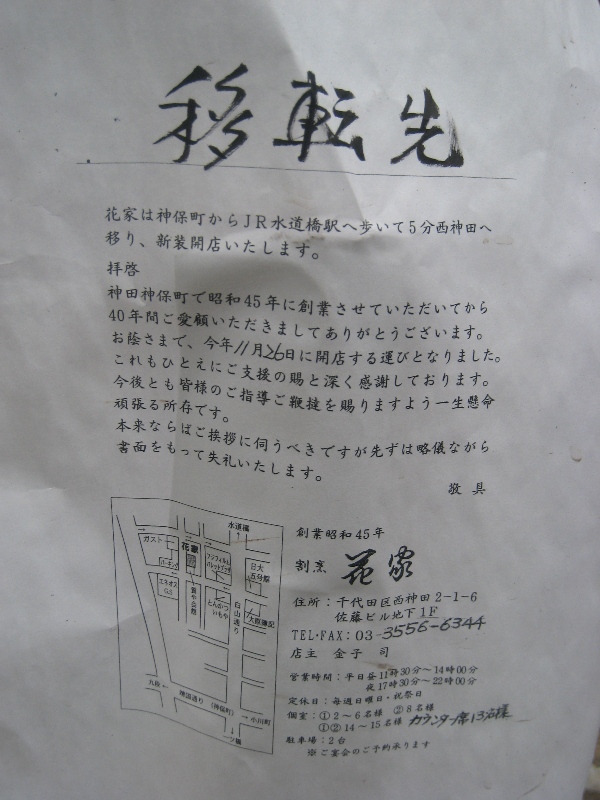 移転先
花家は神保町からJR水道橋駅へ歩いて5分西神田へ
移り、新装開店いたします。
拝啓
神田神保町で昭和45年に創業させていただいてから
40年間ご愛顧いただきましてありがとうございます。
お蔭さまで、今年11月26日に開店する運びとなりました。
これもひとえにご支援の賜と深く感謝しております。
今後とも皆様のご指導ご鞭撻を賜りますよう一生懸命
頑張る所存です。
本来ならばご挨拶に伺うべきですが先ずは略儀ながら
書面をもって失礼いたします。
敬具
水道橋
ガスト
花家
日大
五号館
パーキング
エネオス
G.S
とんかつ
いもや
白山通り
九段
靖国通り
(神保町)
小川町
一ツ橋
創業昭和45年
割烹 花家
住所:千代田区西神田2-1-6
佐藤ビル地下1F
TEL・FAX:03-3556-6344
店主 金子 司
営業時間:平日昼11時30分〜14時00分
夜17時30分〜22時00分
定休日:毎週日曜日・祝祭日
個室:①2〜6名様 ②8名様
①②14〜15名様 カウンター席13名様
駐車場:2台
※ご宴会のご予約承ります